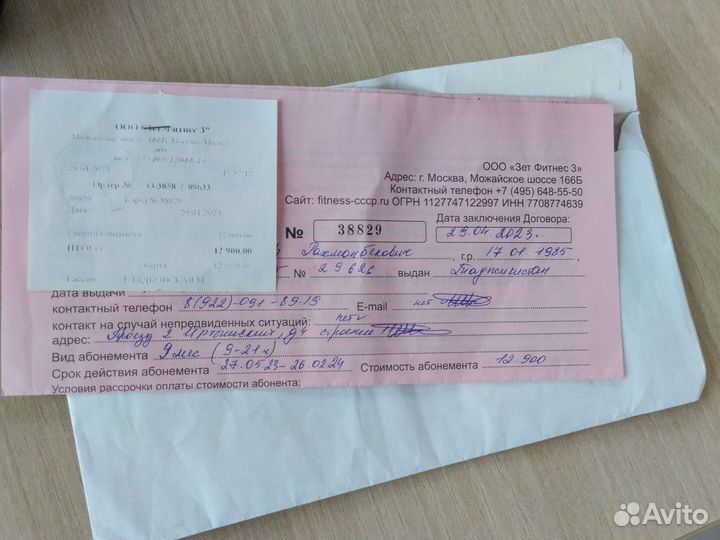 ООО "Зет Фитнес 3"
Можайское шоссе 166Б Москва
29.04.2023 17:57:12
Ордер №
38829 Карта № 38829
Дата 29.04.2023
12 900.00
ИТОГО 12 900.00
карта
Кассир
ООО «Зет Фитнес 3»
Адрес: г. Москва, Можайское шоссе 166Б
Контактный телефон +7 (495) 648-55-50
Сайт: fitness-cccp.ru ОГРН 1127747122997 ИНН 7708774639
№ 38829
Дата заключения Договора:
29.04.2023г.
Рахмонбекович, г.р. 17.01.1985,
№ 29626 выдан Таджикистан
дата выдачи
контактный телефон 8(922)-091-89-19 E-mail нет
контакт на случай непредвиденных ситуаций: нет
адрес: Проезд 2 Иртышский, д4
Вид абонемента 9 мес (9-21ч)
Срок действия абонемента 27.05.23-26.02.24 Стоимость абонемента 12.900
Условия рассрочки оплаты стоимости абонента:
Avito